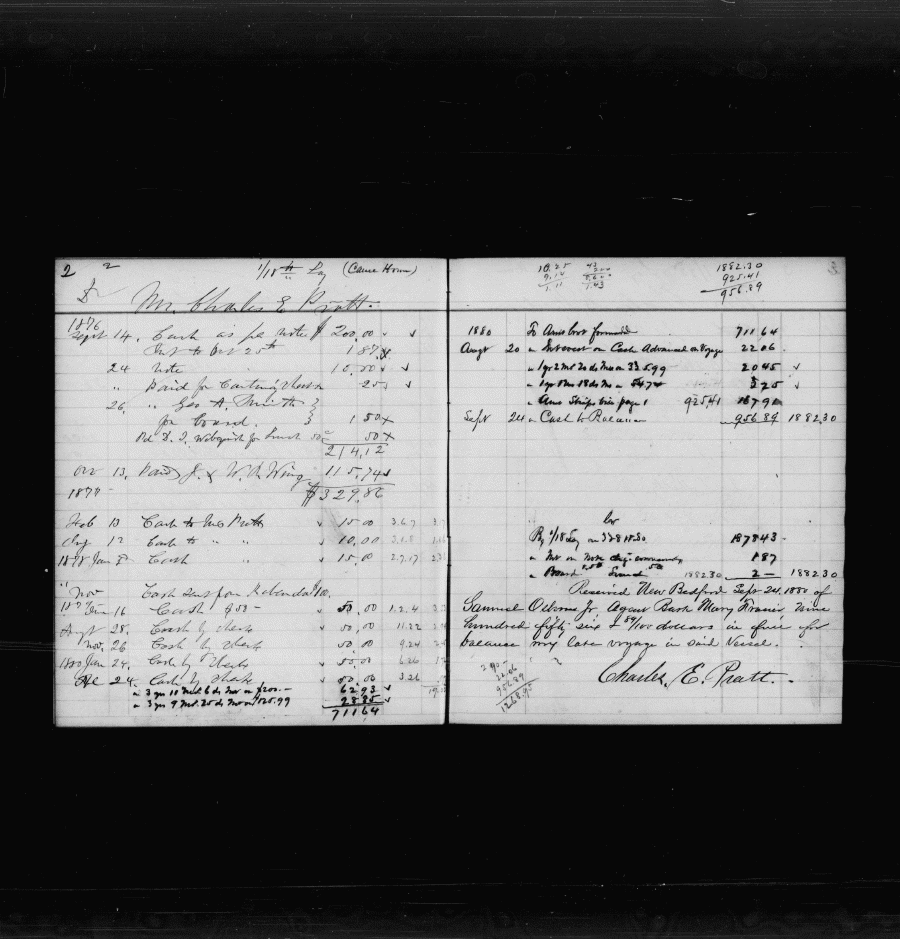 2 2 1/18th Lay (Came Home)
Dr Mr. Charles E. Pratt.
1876
Sept 14. Cash as pr note $ 200.00
Int to Oct 25th 1.87 x
24 note 10.00
" Paid for Carting Chest 25
26 " Geo A. Smith
for board. 1.50 x
50 x
214.12
Nov 13. Paid J. & W. R. Wing 115.74
1877 $329.86
Feb 13 Cash to Mrs Pratt 15.00 3.6.7
Aug 12 Cash to " " 10.00
1878 Jan 8 Cash 15.00 2.7.17
Nov Cash sent
1879 Jan 16 Cash 50.00 1.2.4
Augt 28. Cash by Check 50.00 11.22
Nov. 26 Cash by Check 50.00 9.24
1880 Jan 24. Cash by Check 50.00 6.26
24. Cash by 50.00 3.26
" 3 yrs 11 Mos 6 ds Int on $200.- 62.93
" 3 yrs 9 Mos 25 ds Int on 125.99 28.85
711.64
10.25
9.14
1.11
1882.30
925.41
956.89
1880 To Amo brot forward 711.64
Augt 20 " Interest on Cash Advanced on Voyage 22.06
" 1 yr 2 Mos 20 ds Int on 335.99 20.45
" 1 yr 8 Mos 18 ds Int on 54.74 5.25
" Amo Ships bill page 1 925.41 167.91
Sept 24 " Cash to Balance 956.89 1882.30
Cr
By 1/18 Lay on 1878.43
" Int on Note 1.87
" Board 1882.30 2 - 1882.30
Received New Bedford Sept. 24. 1880 of
Samuel Osborne Jr. Agent Bark Mary Frazier Nine
hundred fifty six & 89/100 dollars in full for
balance my late voyage in said Vessel.
22.06
956.89
Charles E. Pratt.